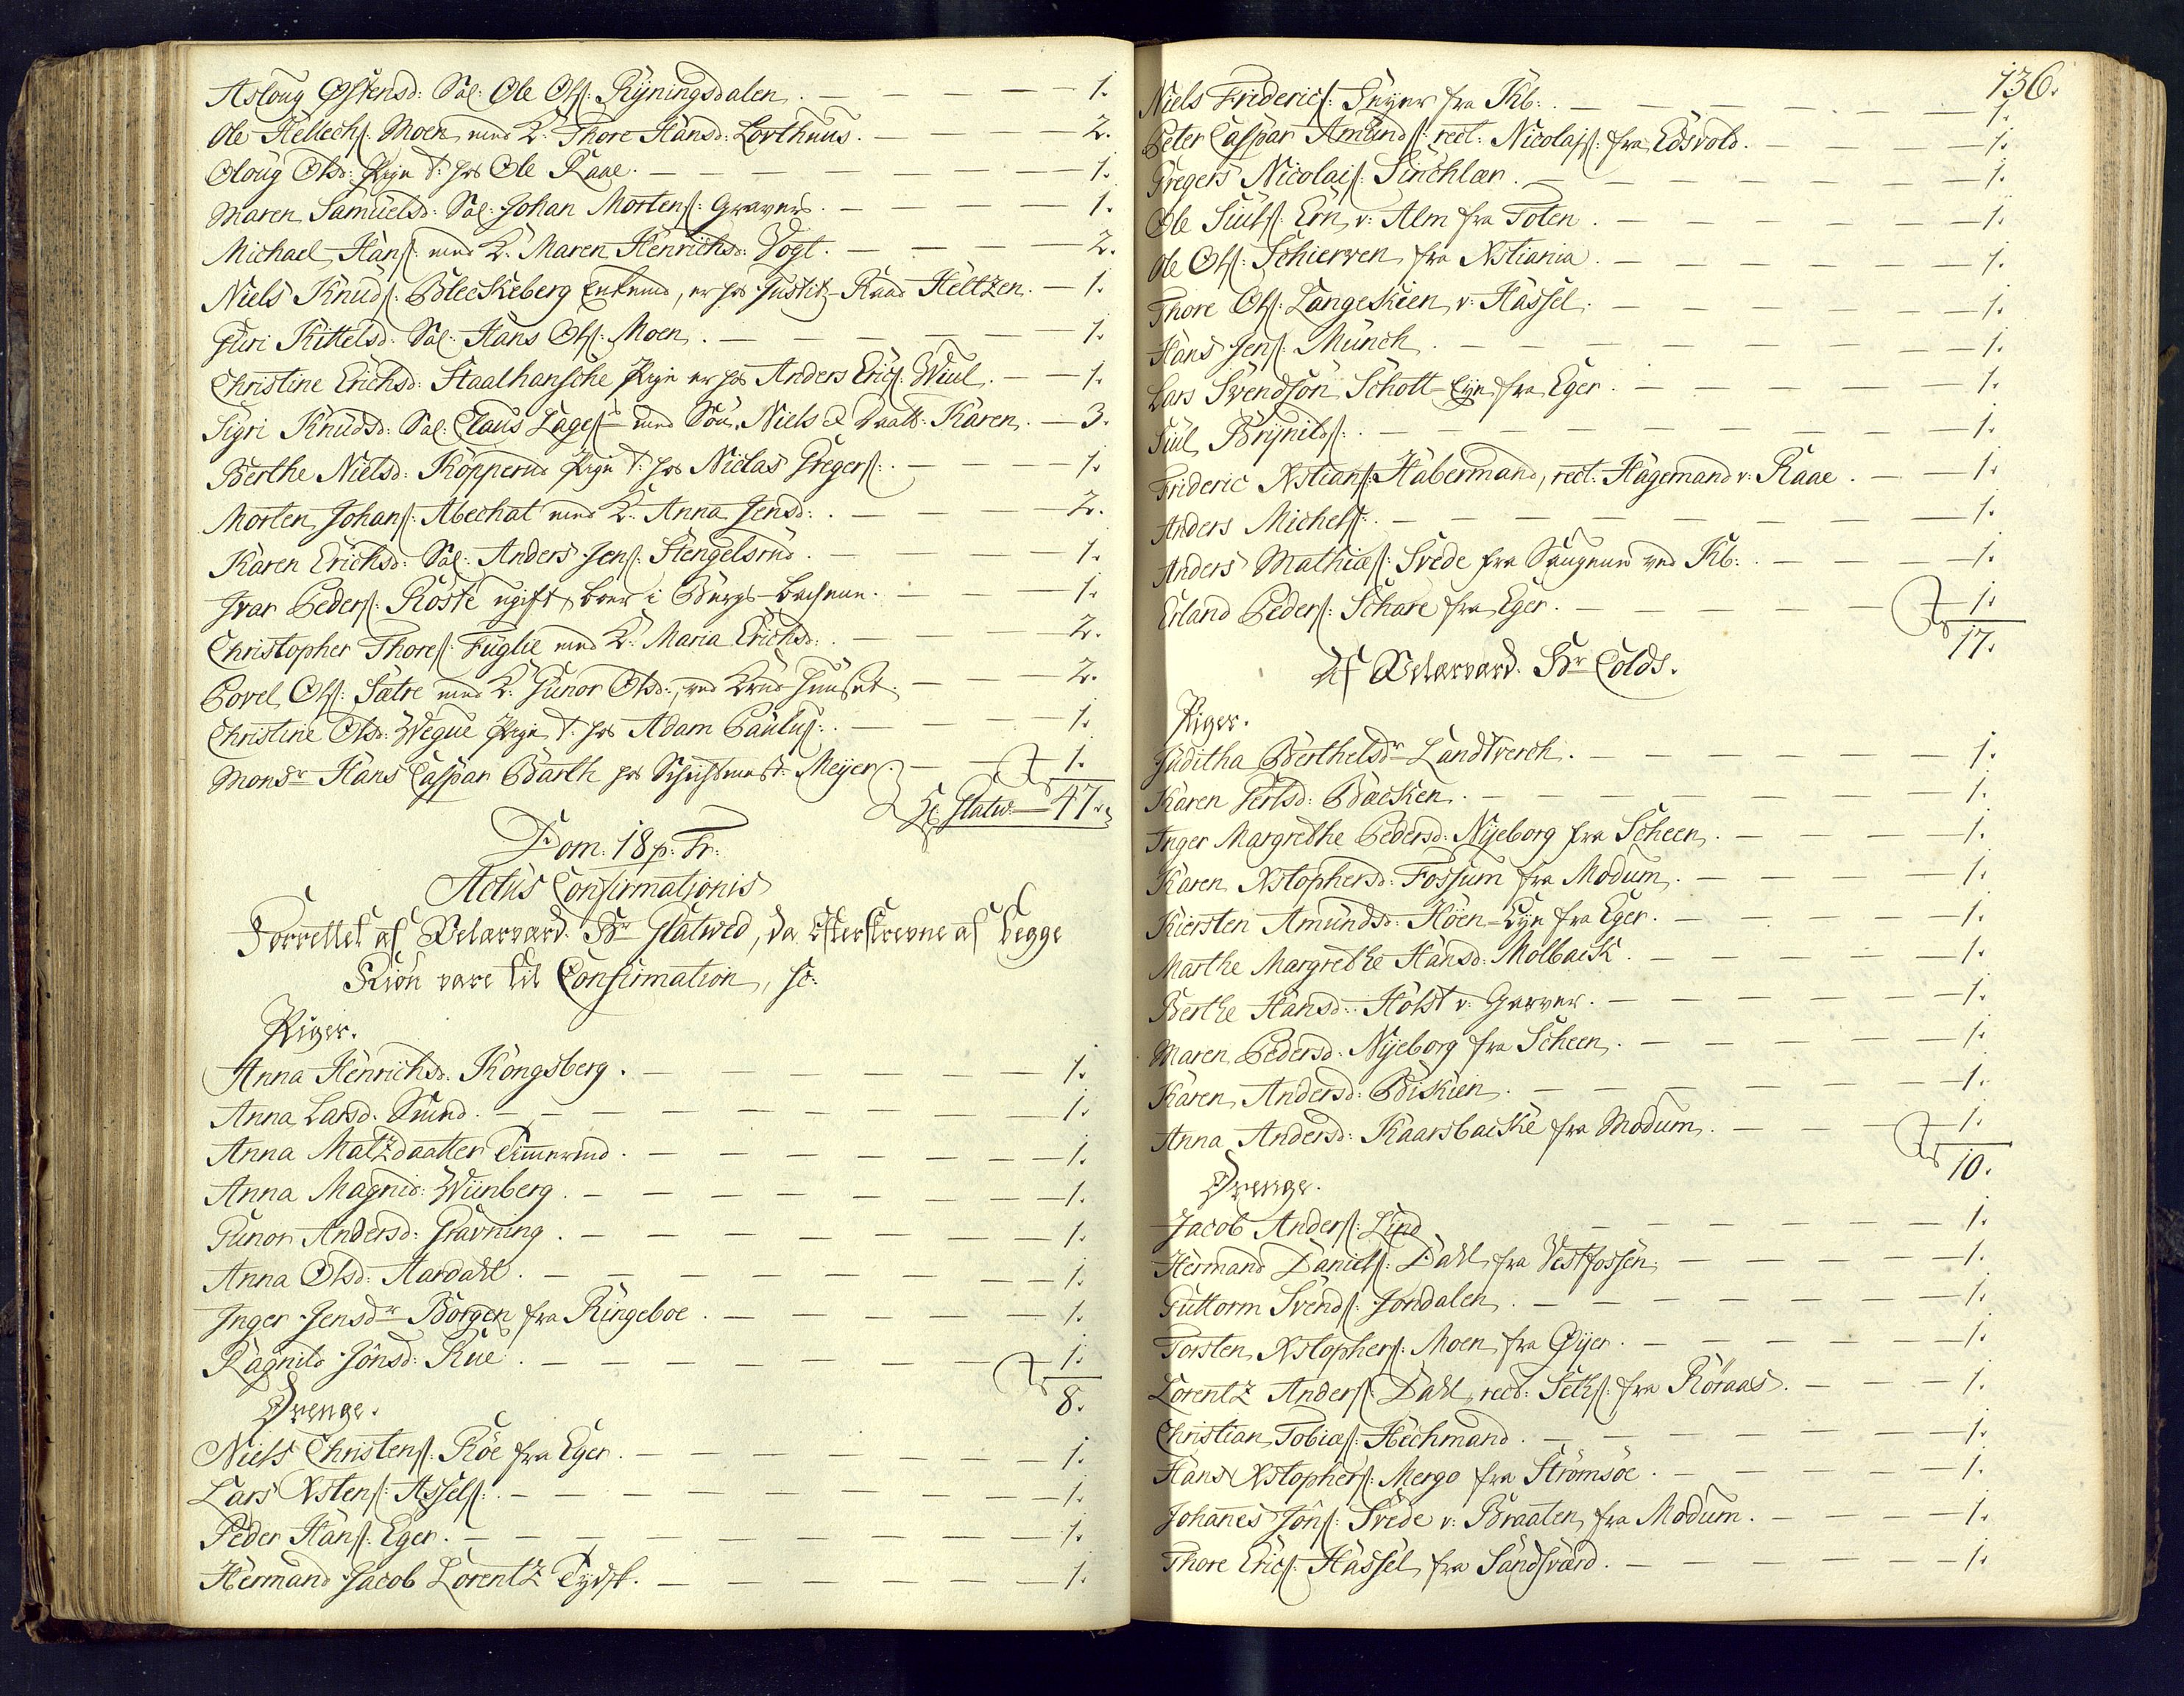 Asloug Østensd: Sal: Ole Ols: Ryningsdalen. — 1.
Ole Hellechs: Moen med K: Thore Hansd: Lorthuus. — 2.
Oloug Olsd: Pige t: hos Ole Raae. — 1.
Maren Samuelsd: Sal: Johan Mortens: Gravers. — 1.
Michael Hans: med K: Maren Henrichsd: Vogt. — 2.
Niels Knuds: Bleckeberg Enkemd, er hos Justitz-Raad Heltzen. — 1.
Guri Kittelsd: Sal: Hans Ols: Moen. — 1.
Christine Erichsd: Staalhansche Pige er hos Anders Erics: Wiul. — 1.
Sigri Knudsd: Sal: Claus Lages: med Søn Niels & Daatt: Karen. — 3.
Berthe Nielsd: Kopperud Pige t: hos Niclas Gregers: — 1.
Morten Johans: Abechat med K: Anna Jensd: — 2.
Karen Erichsd: Sal: Anders Jens: Stengelsrud. — 1.
Ivar Peders: Røste ugift, boer i Bærgs-bachene. — 1.
Christopher Thores: Fuglie med K: Maria Erichsd: — 2.
Povel Ols: Sætre med K: Gunor Olsd:, ved Brud Huuset. — 2.
Christine Olsd: Wegue Pige t: hos Adam Pauls: — 1.
Monsr Hans Caspar Barth hos Schichtmest: Meyer. — 1.
Hr. Glatw: — 47.
Dom: 18 p: Tr:
Actus Confirmationis
Forrettet af Velærværd. Hr Glatwed, da efterskrevne af begge
Kiøn vare til Confirmation, sc:
Piger.
Anna Henrichsd. Kongsberg. — 1.
Anna Larsd. Smed. — 1.
Anna Matzdaatter Timermd. — 1.
Anna Magnid: Wiinberg. — 1.
Gunor Andersd: Gravning. — 1.
Anna Olsd: Aardahl. — 1.
Inger Jensdr Borgen fra Ringeboe. — 1.
Ragnild Jonsd: Rue. — 1.
8.
Drenge.
Niels Christens: Røe fra Eger. — 1.
Lars Xstens: Assels: — 1.
Peder Hans: Eger. — 1.
Hermand Jacob Lorentz Tydsk. — 1.
136.
Niels Frideric: Seyer fra Kb: — 1.
Peter Caspar Amunds: rect: Nicolajs: fra Edsvold. — 1.
Gregers Nicolais: Sinchlær. — 1.
Ole Siuls: Ern v: Alm fra Toten. — 1.
Ole Ols: Schierven fra Xstiania. — 1.
Thore Ols: Langeskien v: Hassel. — 1.
Hans Jens: Munch. — 1.
Lars Svendsøn Schott-Eje fra Eger. — 1.
Siul Brynilds: — 1.
Frideric Xstians: Habermand, rect: Hagemand v: Raae. — 1.
Anders Michels: — 1.
Anders Mathiæs: Svede fra Saugene ved Kb: — 1.
Erland Peders: Schare fra Eger. — 1.
17.
Af Velærværd. Hr Colds.
Piger.
Juditha Berthelsdr Landtverch. — 1.
Karen Persd: Backen. — 1.
Inger Margrethe Pedersd: Nyeborg fra Scheen. — 1.
Karen Xstophersd: Fossum fra Modum. — 1.
Kiersten Amundsd: Høen-Eje fra Eger. — 1.
Marthe Margrethe Hansd: Molbaik. — 1.
Berthe Hansd: Holst v: Garver. — 1.
Maren Pedersd: Nyeborg fra Scheen. — 1.
Karen Andersd: Biskien. — 1.
Anna Andersd: Kaarsbacke fra Modum. — 1.
10.
Drenge.
Jacob Anders: Lind — 1.
Hermand Daniels: Dahl fra Vestfossen. — 1.
Guttorm Svends: Jondalen. — 1.
Torsten Xstophers: Moen fra Øyer. — 1.
Lorentz Anders: Dahl, rect: Seths: fra Røraas. — 1.
Christian Tobiæs: Hichmand. — 1.
Hans Xstophers: Mergo fra Strømsøe. — 1.
Johannes Jons: Svede v: Braaten fra Modum. — 1.
Thore Erics: Hassel fra Sandsværd. — 1.